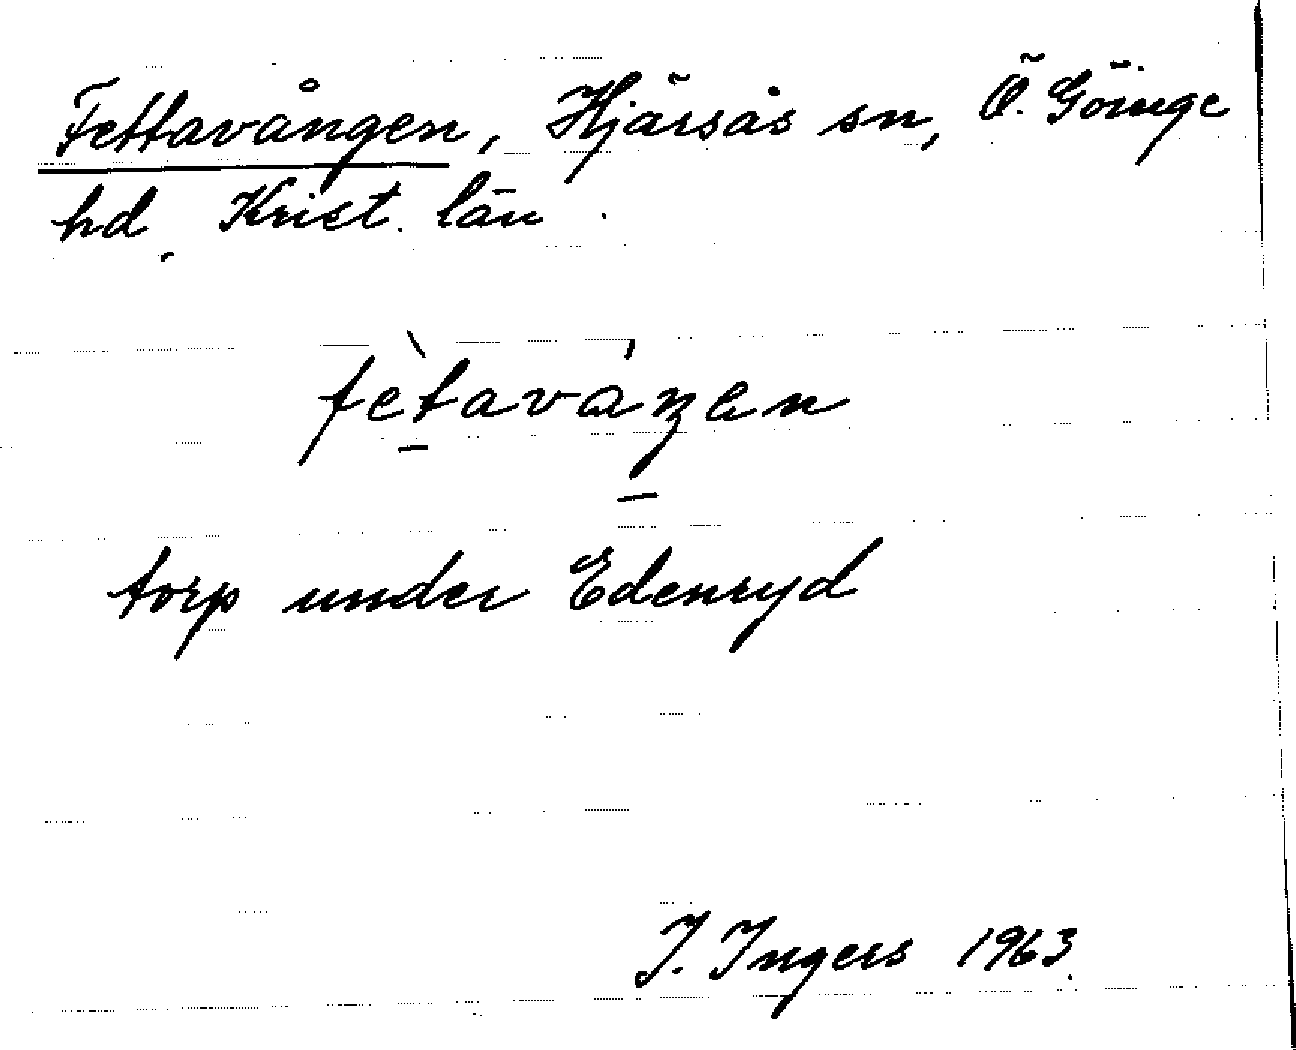 Fettavången, Hjärsås sn, Ö. Göinge
hd, Krist. län.
fètavåŋen
torp under Edenryd
I. Ingers 1963.